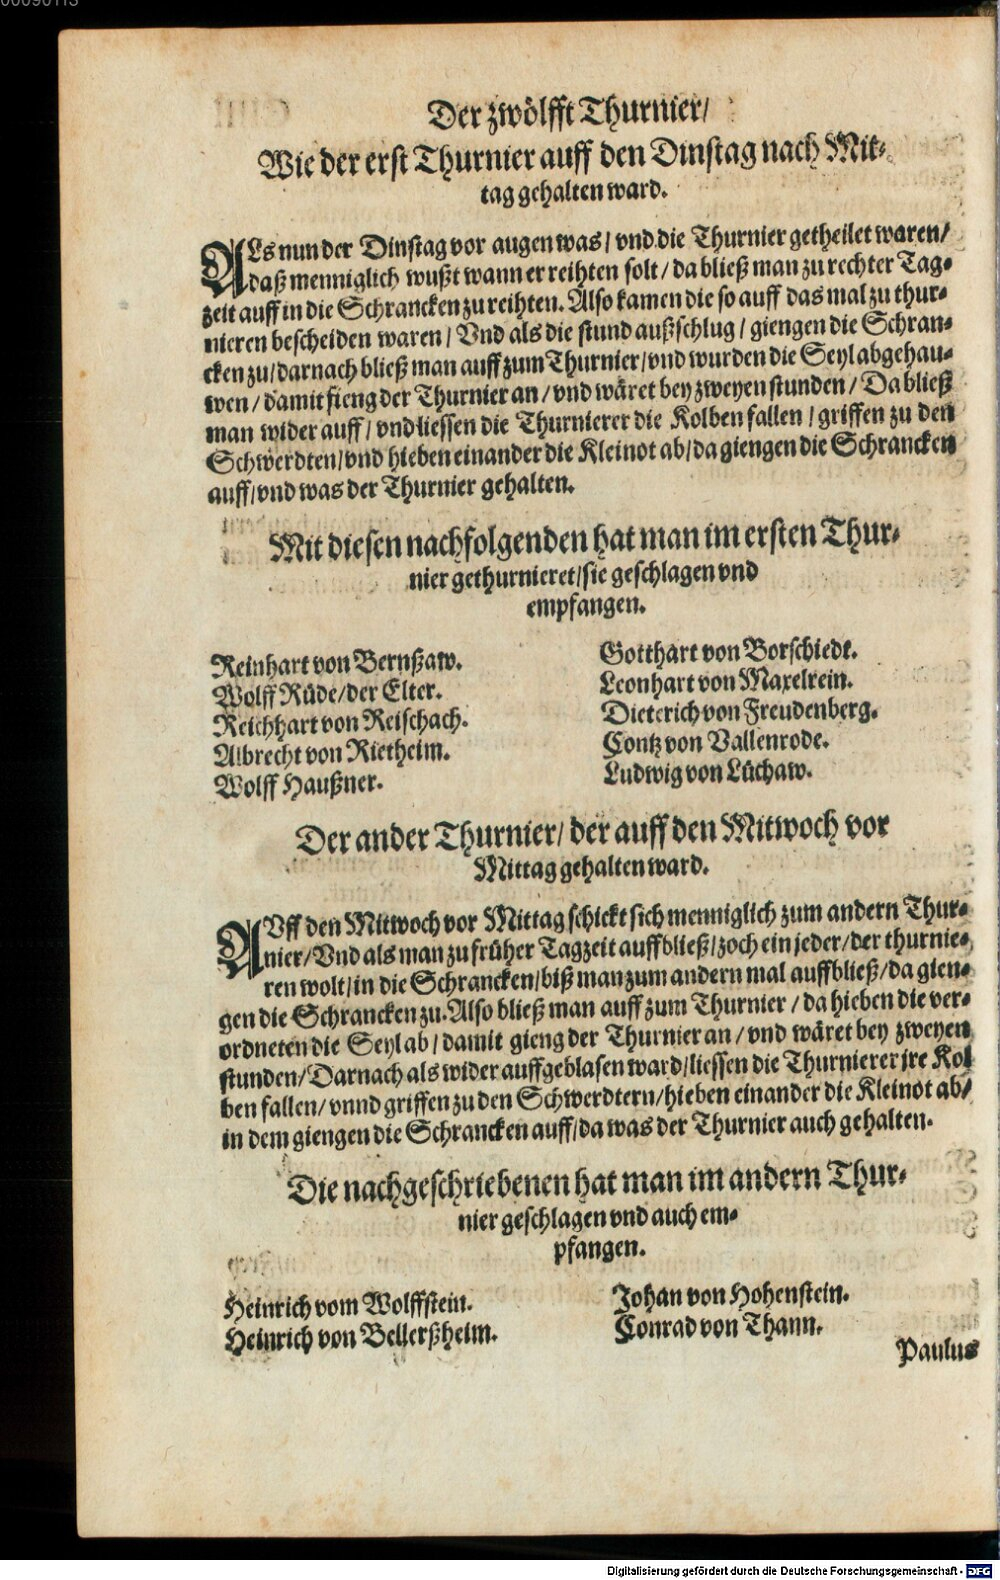 00090113
Der zwölfft Thurnier/
Wie der erst Thurnier auff den Dinstag nach Mit-
tag gehalten ward.
ALs nun der Dinstag vor augen was / vnd die Thurnier getheilet waren/
daß menniglich wußt wann er reihten solt / da bließ man zu rechter Tag-
zeit auff in die Schrancken zu reihten. Also kamen die so auff das mal zu thur-
nieren bescheiden waren / Vnd als die stund außschlug / giengen die Schran-
cken zu / darnach bließ man auff zum Thurnier / vnd wurden die Seyl abgehau-
wen / damit fieng der Thurnier an / vnd wäret bey zweyen stunden / Da bließ
man wider auff / vnd liessen die Thurnierer die Kolben fallen / griffen zu den
Schwerdten / vnd hieben einander die Kleinot ab / da giengen die Schrancken
auff / vnd was der Thurnier gehalten.
Mit diesen nachfolgenden hat man im ersten Thur-
nier gethurnieret / sie geschlagen vnd
empfangen.
Reinhart von Bernßaw.
Wolff Rüde / der Elter.
Reichhart von Reischach.
Albrecht von Rietheim.
Wolff Haußner.
Gotthart von Borschiedt.
Leonhart von Maxelrein.
Dieterich von Freudenberg.
Contz von Vallenrode.
Ludwig von Lüchaw.
Der ander Thurnier / der auff den Mitwoch vor
Mittag gehalten ward.
AVff den Mitwoch vor Mittag schickt sich menniglich zum andern Thur-
nier / Vnd als man zu früher Tagzeit auffbließ / zoch ein jeder / der thurnie-
ren wolt / in die Schrancken / biß man zum andern mal auffbließ / da gien-
gen die Schrancken zu. Also bließ man auff zum Thurnier / da hieben die ver-
ordneten die Seyl ab / damit gieng der Thurnier an / vnd wäret bey zweyen
stunden / Darnach als wider auffgeblasen ward / liessen die Thurnierer jre Kol
ben fallen / vnnd griffen zu den Schwerdtern / hieben einander die Kleinot ab /
in dem giengen die Schrancken auff / da was der Thurnier auch gehalten.
Die nachgeschriebenen hat man im andern Thur-
nier geschlagen vnd auch em-
pfangen.
Heinrich vom Wolffstein.
Heinrich von Bellerßheim.
Johan von Hohenstein.
Conrad von Thann.
Paulus
Digitalisierung gefördert durch die Deutsche Forschungsgemeinschaft - DFG